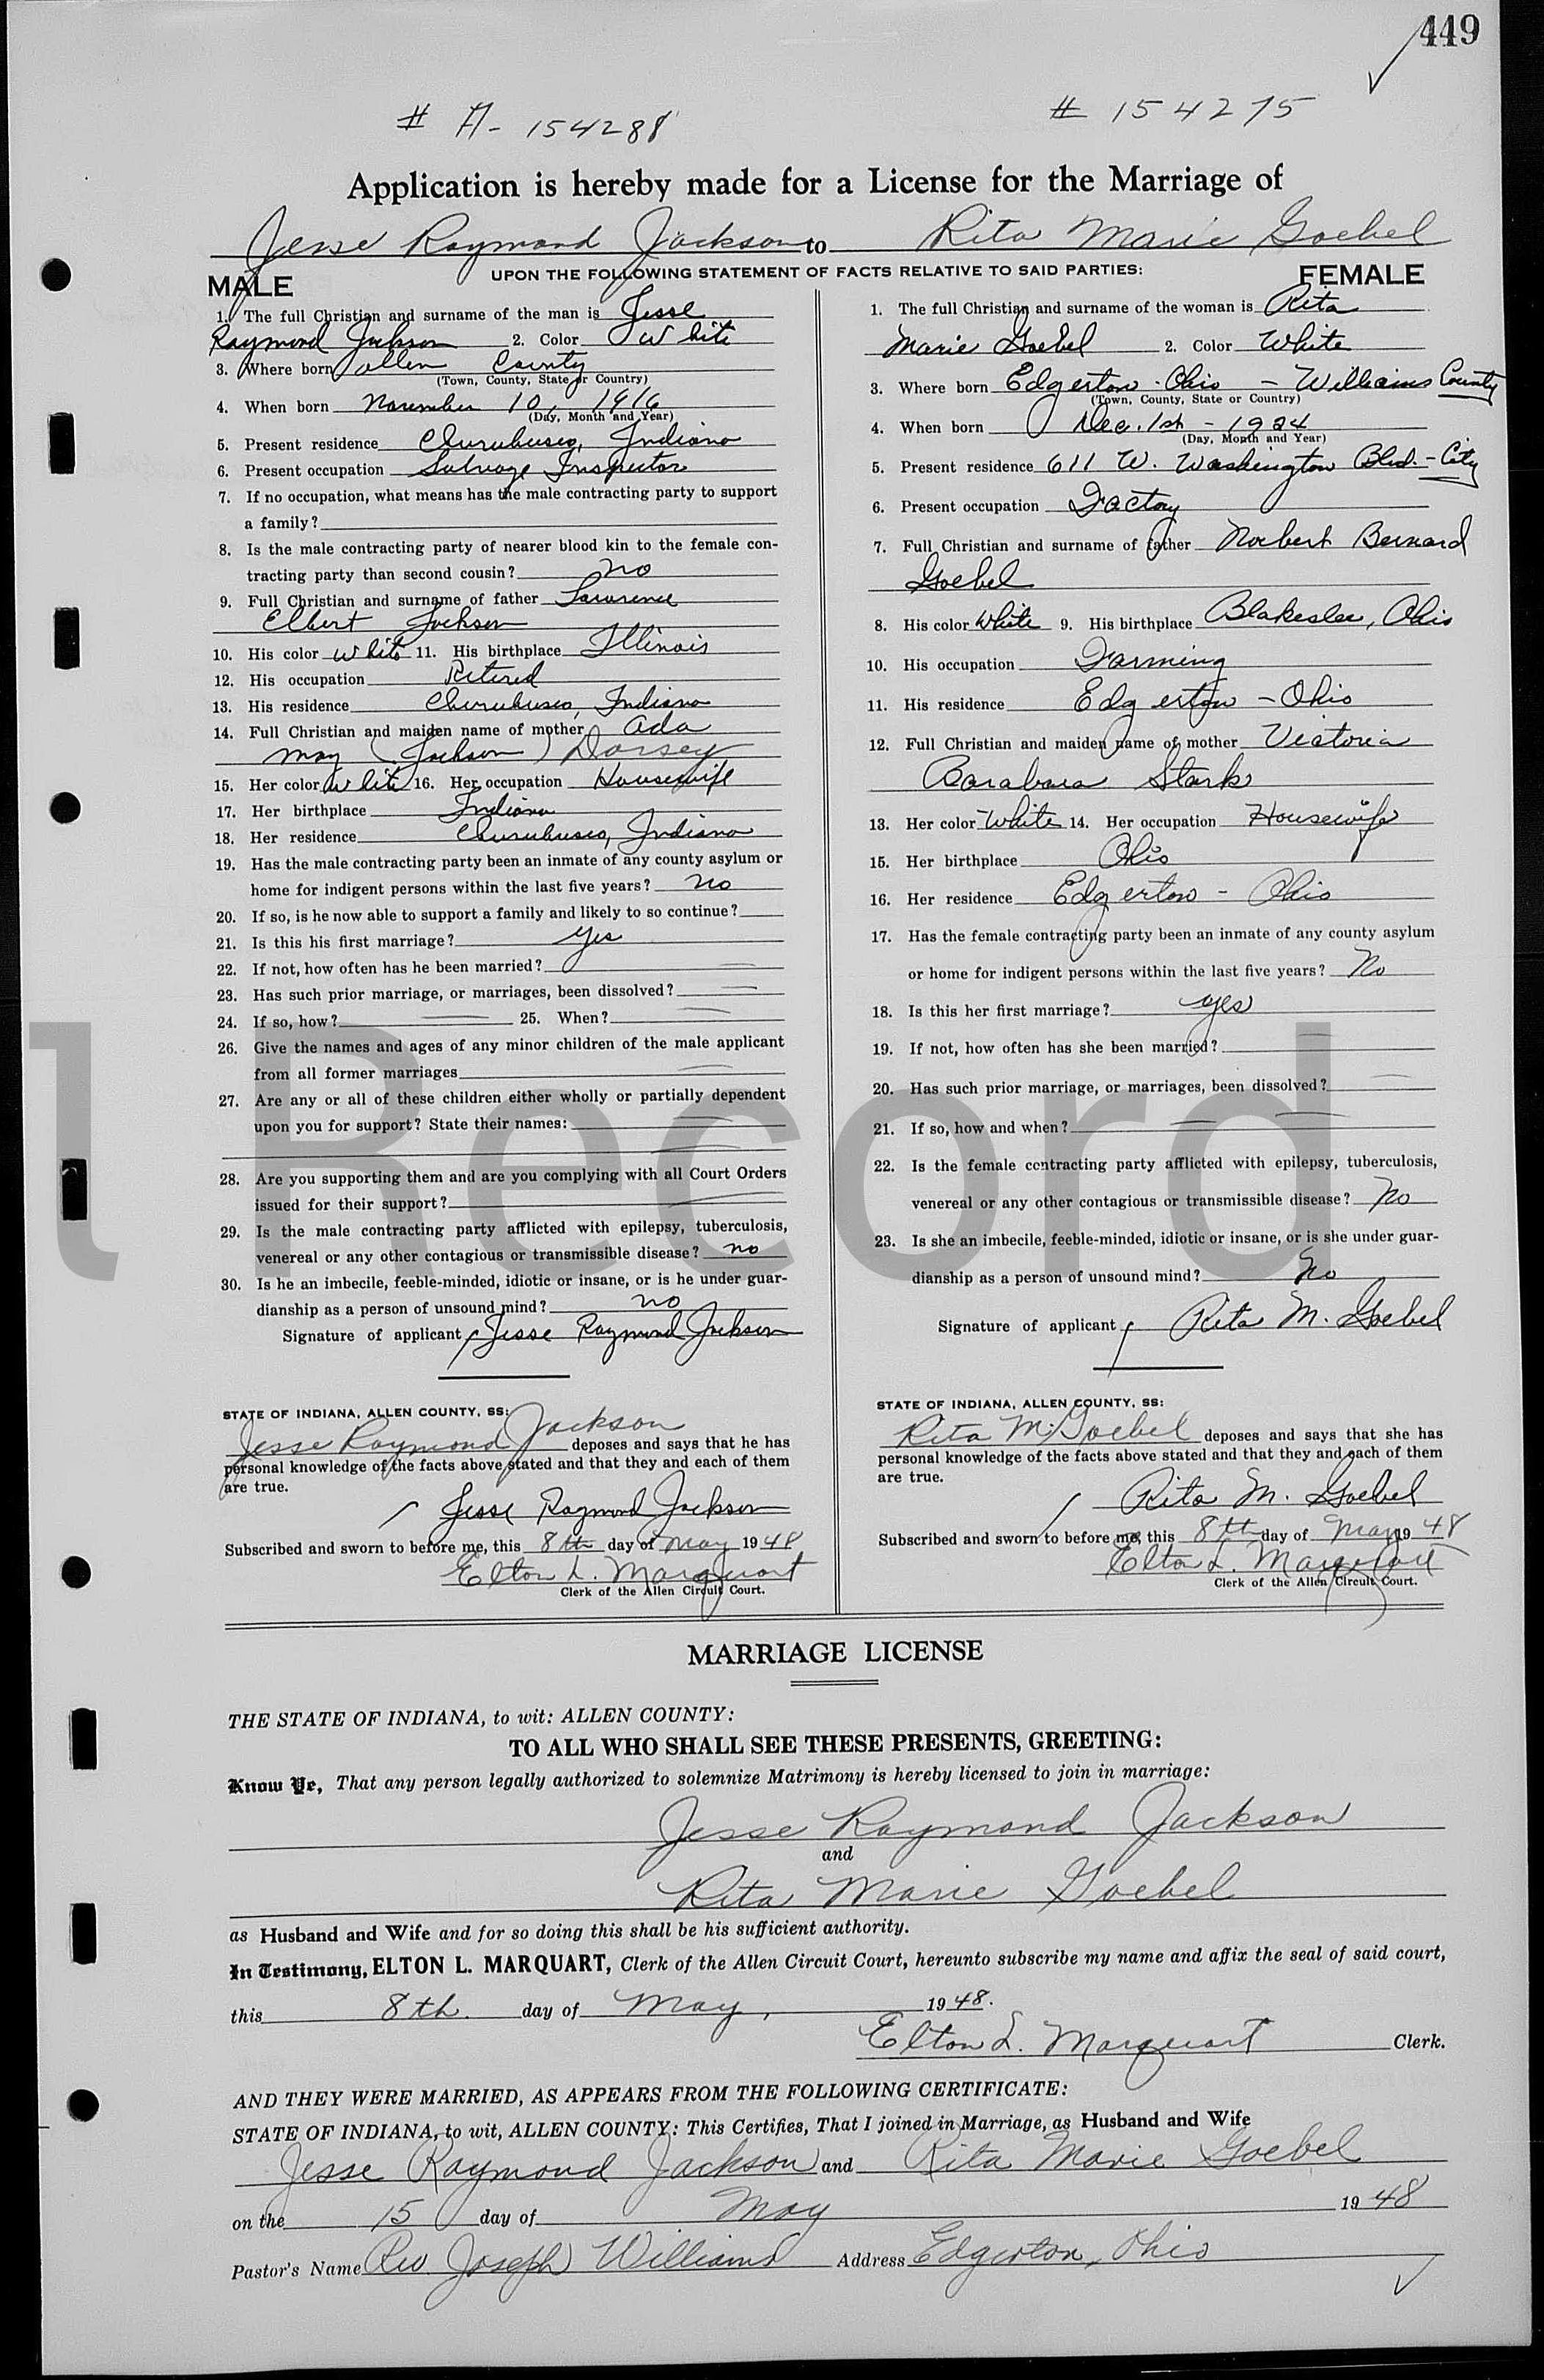 449
# A-154288
# 154275
Application is hereby made for a License for the Marriage of
Jesse Raymond Jackson to Rita Marie Goebel
UPON THE FOLLOWING STATEMENT OF FACTS RELATIVE TO SAID PARTIES:
MALE
1. The full Christian and surname of the man is Jesse
Raymond Jackson 2. Color White
3. Where born Allen County
(Town, County, State or Country)
4. When born November 10, 1916
(Day, Month and Year)
5. Present residence Churubusco, Indiana
6. Present occupation Salvage Inspector
7. If no occupation, what means has the male contracting party to support
a family?
8. Is the male contracting party of nearer blood kin to the female con-
tracting party than second cousin? no
9. Full Christian and surname of father Lawrence
Elbert Jackson
10. His color White 11. His birthplace Illinois
12. His occupation Retired
13. His residence Churubusco, Indiana
14. Full Christian and maiden name of mother Ada
May (Jackson) Dorsey
15. Her color White 16. Her occupation Housewife
17. Her birthplace Indiana
18. Her residence Churubusco, Indiana
19. Has the male contracting party been an inmate of any county asylum or
home for indigent persons within the last five years? no
20. If so, is he now able to support a family and likely to so continue?
21. Is this his first marriage? yes
22. If not, how often has he been married?
23. Has such prior marriage, or marriages, been dissolved?
24. If so, how? 25. When?
26. Give the names and ages of any minor children of the male applicant
from all former marriages
27. Are any or all of these children either wholly or partially dependent
upon you for support? State their names:
28. Are you supporting them and are you complying with all Court Orders
issued for their support?
29. Is the male contracting party afflicted with epilepsy, tuberculosis,
venereal or any other contagious or transmissible disease? no
30. Is he an imbecile, feeble-minded, idiotic or insane, or is he under guar-
dianship as a person of unsound mind? no
Signature of applicant Jesse Raymond Jackson
STATE OF INDIANA, ALLEN COUNTY, SS:
Jesse Raymond Jackson deposes and says that he has
personal knowledge of the facts above stated and that they and each of them
are true.
Jesse Raymond Jackson
Subscribed and sworn to before me, this 8th day of May 1948
Elton L. Marquart
Clerk of the Allen Circuit Court.
FEMALE
1. The full Christian and surname of the woman is Rita
Marie Goebel 2. Color White
3. Where born Edgerton - Ohio - Williams County
(Town, County, State or Country)
4. When born Dec. 1st - 1924
(Day, Month and Year)
5. Present residence 611 W. Washington Blvd. - City
6. Present occupation Factory
7. Full Christian and surname of father Norbert Bernard
Goebel
8. His color White 9. His birthplace Blakeslee, Ohio
10. His occupation Farming
11. His residence Edgerton - Ohio
12. Full Christian and maiden name of mother Victoria
Barabara Stark
13. Her color White 14. Her occupation Housewife
15. Her birthplace Ohio
16. Her residence Edgerton - Ohio
17. Has the female contracting party been an inmate of any county asylum
or home for indigent persons within the last five years? No
18. Is this her first marriage? yes
19. If not, how often has she been married?
20. Has such prior marriage, or marriages, been dissolved?
21. If so, how and when?
22. Is the female contracting party afflicted with epilepsy, tuberculosis,
venereal or any other contagious or transmissible disease? No
23. Is she an imbecile, feeble-minded, idiotic or insane, or is she under guar-
dianship as a person of unsound mind? No
Signature of applicant Rita M. Goebel
STATE OF INDIANA, ALLEN COUNTY, SS:
Rita M. Goebel deposes and says that she has
personal knowledge of the facts above stated and that they and each of them
are true.
Rita M. Goebel
Subscribed and sworn to before me, this 8th day of May 1948
Elton L. Marquart
Clerk of the Allen Circuit Court.
l Record
MARRIAGE LICENSE
THE STATE OF INDIANA, to wit: ALLEN COUNTY:
TO ALL WHO SHALL SEE THESE PRESENTS, GREETING:
Know Ye, That any person legally authorized to solemnize Matrimony is hereby licensed to join in marriage:
Jesse Raymond Jackson
and
Rita Marie Goebel
as Husband and Wife and for so doing this shall be his sufficient authority.
In Testimony, ELTON L. MARQUART, Clerk of the Allen Circuit Court, hereunto subscribe my name and affix the seal of said court,
this 8th. day of May, 1948.
Elton L. Marquart Clerk.
AND THEY WERE MARRIED, AS APPEARS FROM THE FOLLOWING CERTIFICATE:
STATE OF INDIANA, to wit, ALLEN COUNTY: This Certifies, That I joined in Marriage, as Husband and Wife
Jesse Raymond Jackson and Rita Marie Goebel
on the 15 day of May 1948
Pastor's Name Rev Joseph Williams Address Edgerton, Ohio